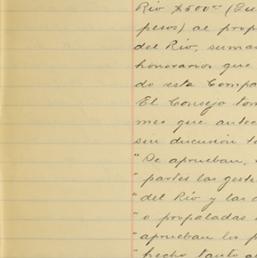 Río $500.00 (Qu
pesos) al prop
del Río, suma
honorarios que
do esta Compa
El Consejo tom
mes que antec
sin discusión to
"De aprueban,
" partes las geste
" del Río y las a
" o propaladas
" aprueban los p
" hecho tanto a